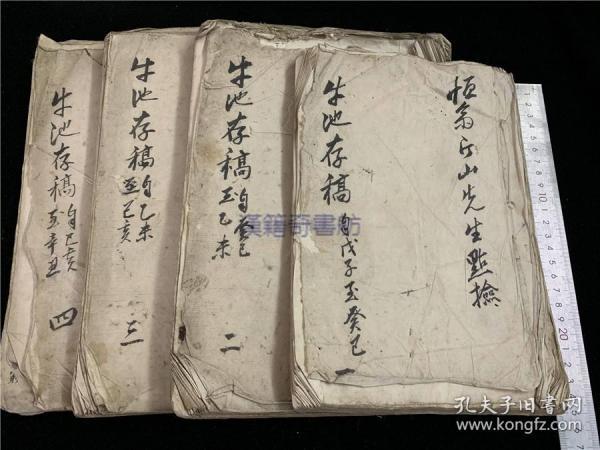 恒翁后山先生點撿
牛池存稿 自戊子至癸巳 一
牛池存稿 自癸巳
至乙未 二
牛池存稿 自乙未
至己亥 三
牛池存稿 自己亥
至辛丑 四
漢籍奇書舫
孔夫子旧书网
www.kongfz.com